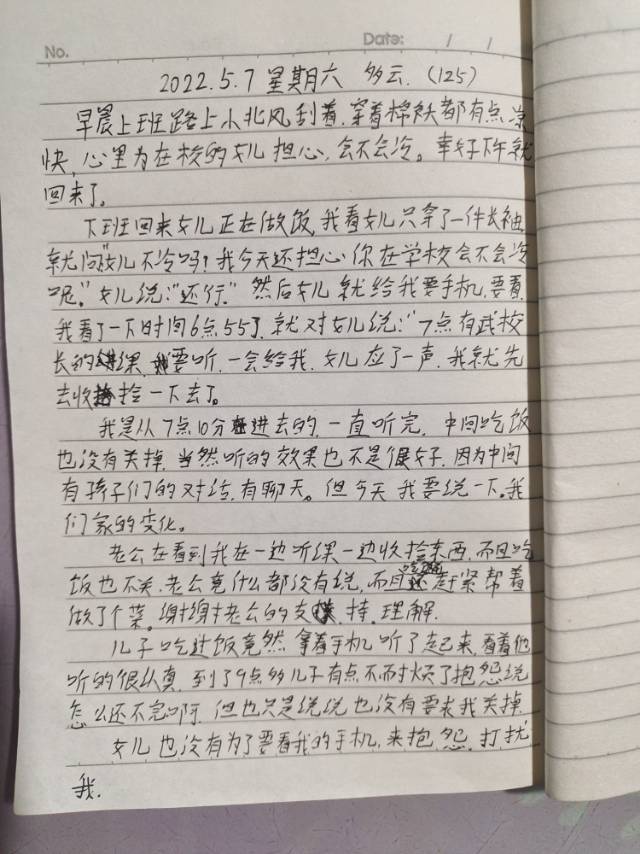 No. Date: / /
2022.5.7 星期六 多云.(125)
早晨上班路上小北风刮着,穿着棉袄都有点凉
快,心里为在校的女儿担心,会不会冷。幸好下午就
回来了。
下班回来女儿正在做饭,我看女儿只拿了一件长袖,
就问女儿不冷吗?我今天还担心你在学校会不会冷
呢。"女儿说:"还行."然后女儿就给我要手机,要看,
我看了一下时间6点55了,就对女儿说:"7点有武校
长的课,我要听,一会给我,女儿应了一声,我就先
去收拾一下去了。
我是从7点10分进去的,一直听完,中间吃饭
也没有关掉,当然听的效果也不是很好,因为中间
有孩子们的对话,有聊天。但今天我要说一下。我
们家的变化。
老公在看到我在一边听课一边收拾东西,而且吃
饭也不关,老公竟什么都没有说,而且还赶紧帮着
做了个菜。谢谢老公的支持,理解.
儿子吃过饭竟然拿着手机听了起来,看着他
听的很认真,到了9点多儿子有点不耐烦了抱怨说
怎么还不完啊,但也只是说说也没有要求我关掉,
女儿也没有为了要看我的手机,来抱怨,打扰
我.